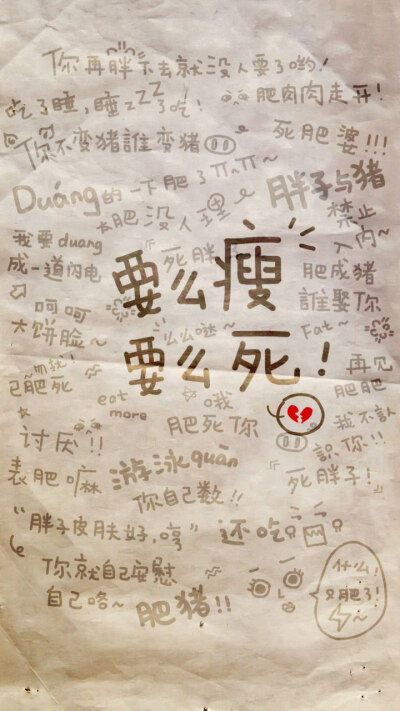 你再胖下去就没人要了哟!
吃了睡,睡zzZ了吃!
嗨肥肉肉走开!
你不变猪誰变猪
死肥婆!!!
Duáng的一下肥了π_π~
胖子与猪
禁止
入内~
大肥没人理
我要duang
成一道闪电
死胖
要么瘦
肥成猪
誰娶你
呵呵
大饼脸~
么么哒~
Fat~
要么死!
再见
肥肥
己肥死
eat
more
哦
肥死你
我不認
識你!!
讨厌!!
表肥嘛
游泳quān
你自己数!!
死胖子!
“胖子皮肤好,哼”
还吃
你就自己安慰
自己咯~
肥猪!!
什么!
又肥了!